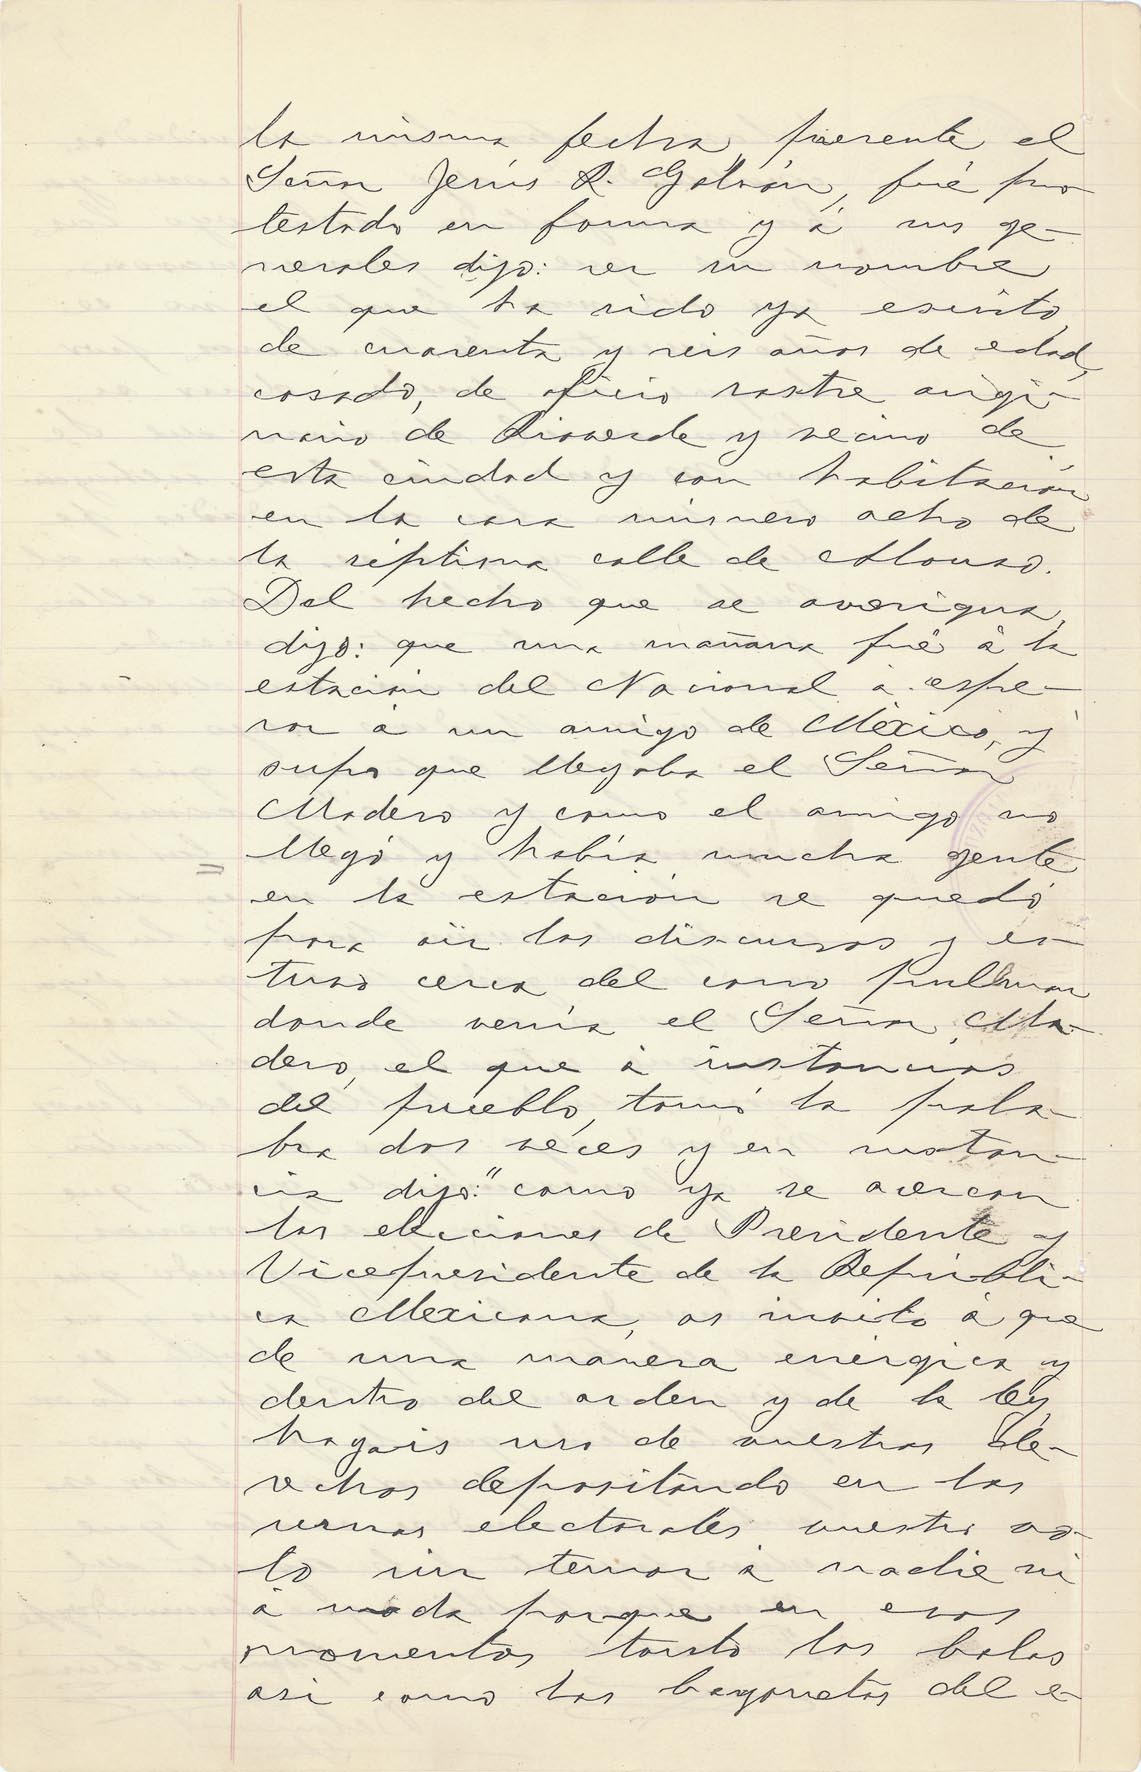 la misma fecha, presente el
Señor Jesús R. Galván, fué pro-
testado en forma y á sus ge-
nerales dijo: ser su nombre
el que ha sido ya escrito,
de cuarenta y seis años de edad,
casado, de oficio sastre origi-
nario de Rioverde y vecino de
esta ciudad y con habitación
en la casa número ocho de
la séptima calle de Alonso.
Del hecho que se averigua,
dijo: que una mañana fué á la
estación del Nacional á espe-
rar á un amigo de México, y
supo que llegaba el Señor
Madero y como el amigo no
llegó y había mucha gente
en la estación se quedó
para oir los discursos y es-
tuvo cerca del carro pullman
donde venía el Señor Ma-
dero, el que á instancias
del pueblo, tomó la pala-
bra dos veces y en sustan-
cia dijo: "como ya se acercan
las elecciones de Presidente y
Vicepresidente de la Repúbli-
ca Mexicana, os invito á que
de una manera enérgica y
dentro del orden y de la ley,
hagais uso de vuestros de-
rechos depositando en las
urnas electorales vuestro vo-
to sin temor á nadie ni
á nada porque en esos
momentos tanto las balas
asi como las bayonetas del e-